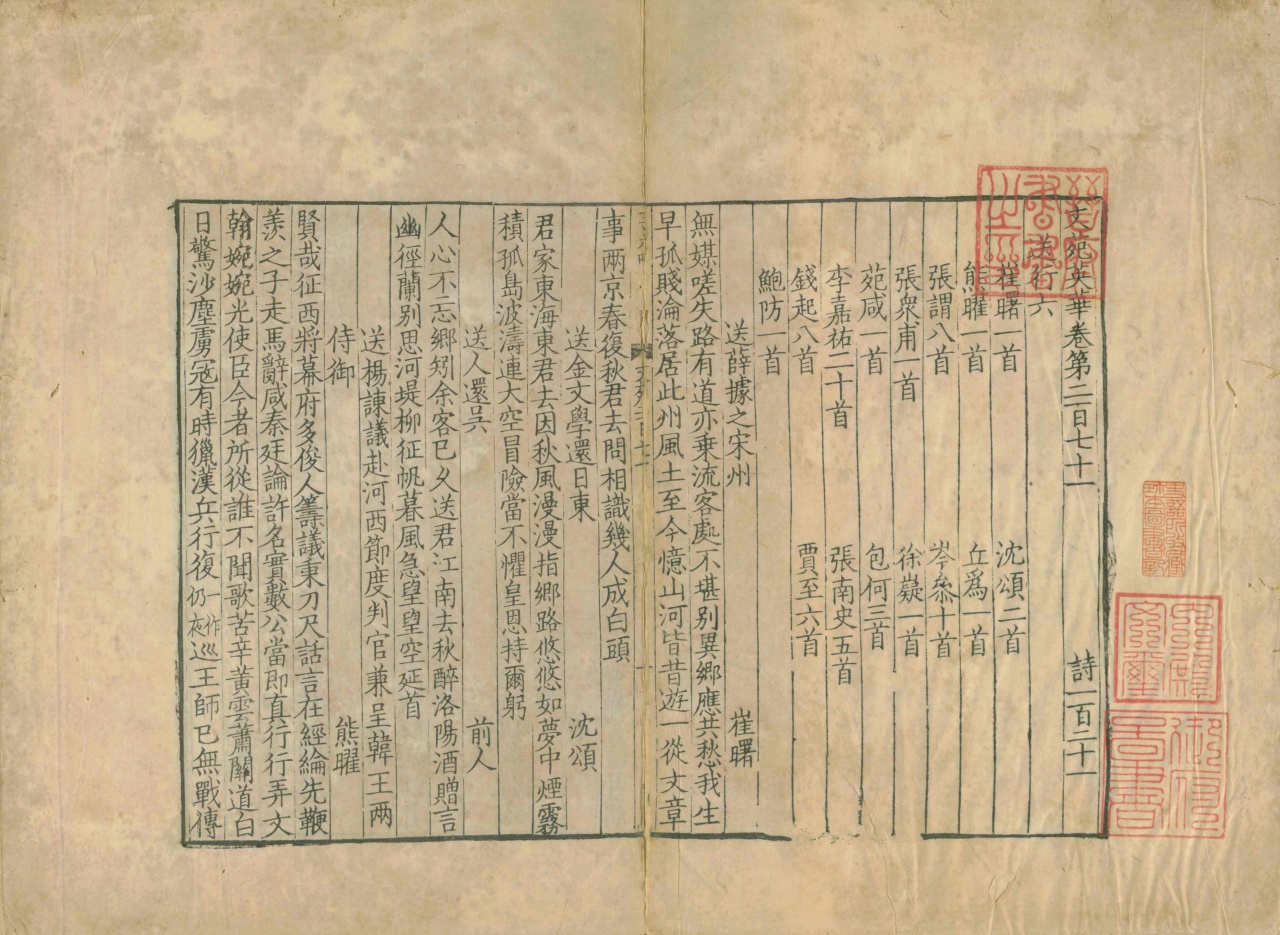 文苑英華卷第二百七十一 詩一百二十一
送行六
崔曙一首 沈頌二首
熊曜一首 丘爲一首
張謂八首 岑參十首
張衆甫一首 徐嶷一首
苑咸一首 包何三首
李嘉祐二十首 張南史五首
錢起八首 賈至六首
鮑防一首
送薛據之宋州 崔曙
無媒嗟失路有道亦乗流客處不堪别異鄉應共愁我生
早孤賤淪落居此州風土至今憶山河皆昔遊一從文章
事两京春復秋君去問相識幾人成白頭
送金文學還日東 沈頌
君家東海東君去因秋風漫漫指鄉路悠悠如夢中煙霧
積孤島波濤連大空冒險當不懼皇恩持爾躬
送人還吳 前人
人心不忘鄉矧余客已久送君江南去秋醉洛陽酒贈言
幽徑蘭别思河堤柳征帆暮風急望望空延首
送楊諫議赴河西節度判官兼呈韓王两
侍御 熊曜
賢哉征西將幕府多俊人籌議秉刀尺話言在經綸先鞭
羨之子走馬辭咸秦廷論許名實數公當即真行行弄文
翰婉婉光使臣今者所從誰不聞歌苦辛黄雲蕭關道白
日驚沙塵虜冦有時獵漢兵行復一作仍夜巡王師已無戰傳